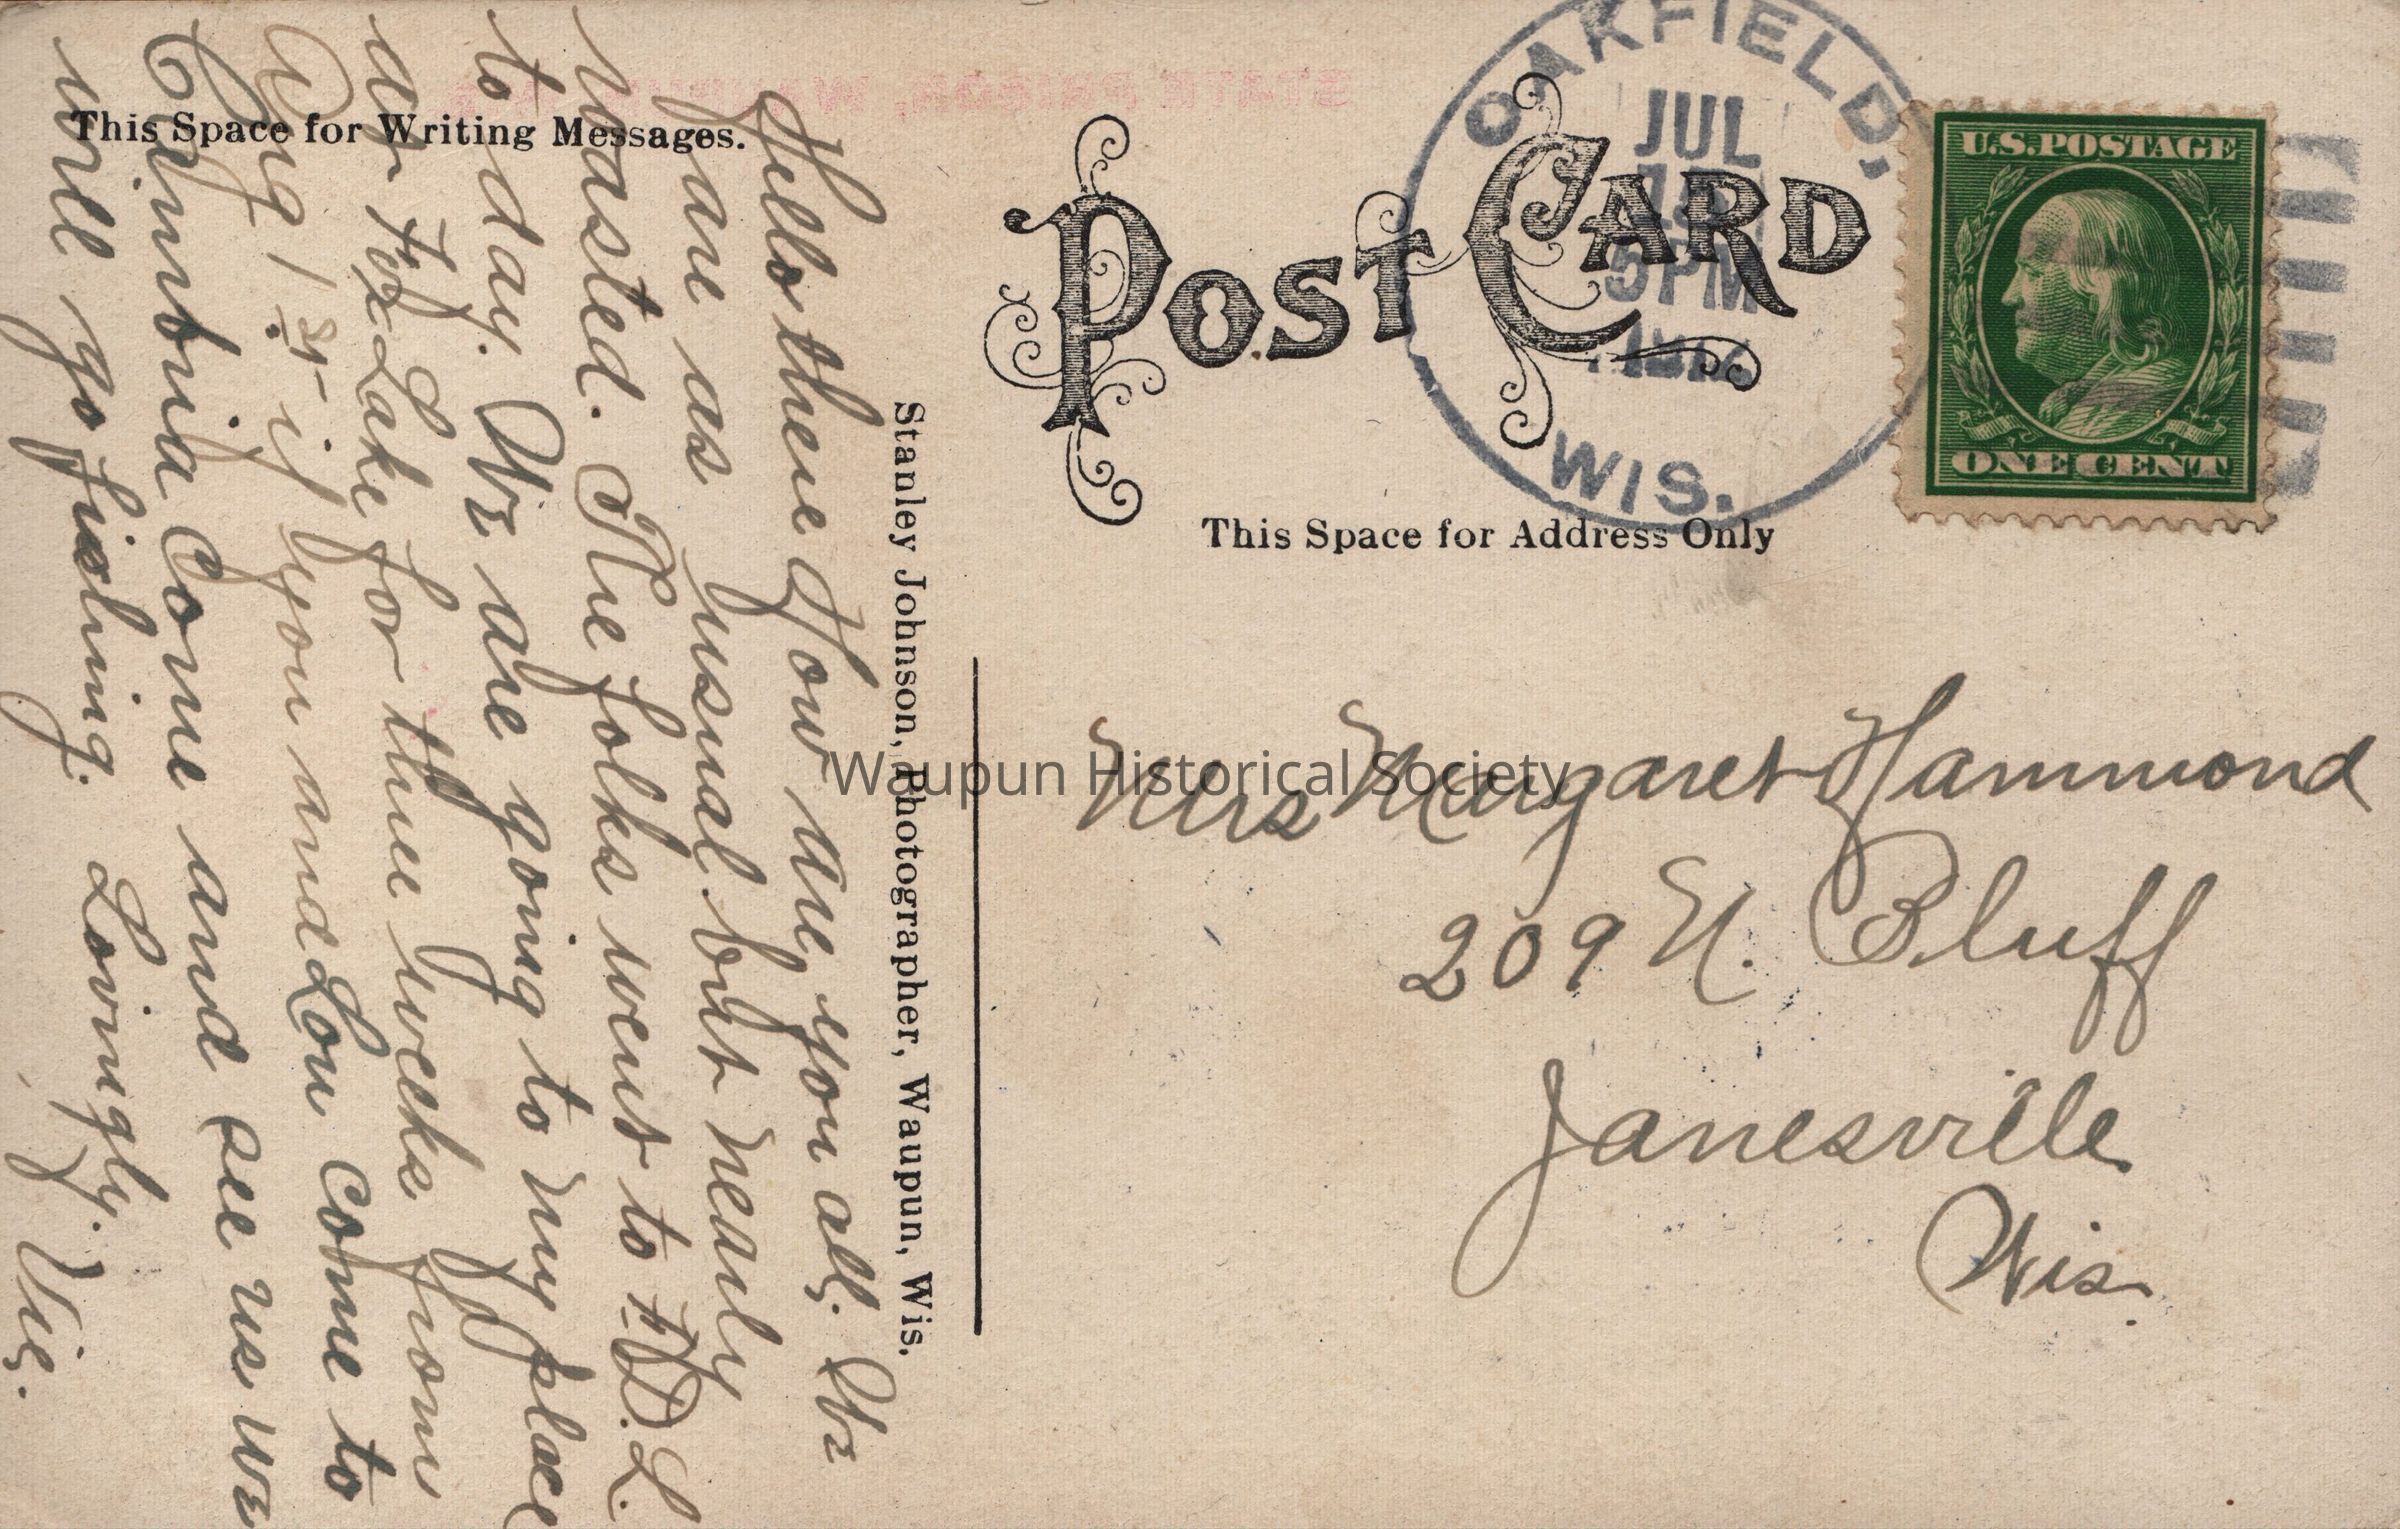 This Space for Writing Messages.
POST CARD
This Space for Address Only
OAKFIELD,
JUL
5 PM
WIS.
U.S. POSTAGE
ONE CENT
STATE PRISON, WAUPUN, WIS.
Stanley Johnson, Photographer, Waupun, Wis.
Waupun Historical Society
Mrs Margaret Hammond
209 N. Bluff
Janesville
Wis.
Hello there How are you all. We
are as usual but nearly
roasted. The folks went to F.D.L.
to day. We are going to my place
at Fox Lake for three weeks from
Aug 1st if you and Lou come to
Cambria come and see us we
will go fishing. Lovingly. Vie.